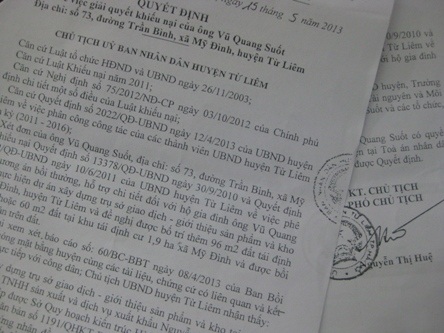 ngày 15 tháng 5 năm 2013
QUYẾT ĐỊNH
việc giải quyết khiếu nại của ông Vũ Quang Suốt
Địa chỉ: số 73, đường Trần Bình, xã Mỹ Đình, huyện Từ Liêm
CHỦ TỊCH UỶ BAN NHÂN DÂN HUYỆN TỪ LIÊM
Căn cứ Luật tổ chức HĐND và UBND ngày 26/11/2003;
Căn cứ Luật Khiếu nại năm 2011;
Căn cứ Nghị định số 75/2012/NĐ-CP ngày 03/10/2012 của Chính phủ
định chi tiết một số điều của Luật khiếu nại;
Căn cứ Quyết định số 2022/QĐ-UBND ngày 12/4/2013 của UBND huyện
về việc phân công công tác của các thành viên UBND huyện Từ Liêm
kỳ (2011 - 2016);
Xét đơn của ông Vũ Quang Suốt, địa chỉ: số 73, đường Trần Bình, xã
khiếu nại Quyết định số 13378/QĐ-UBND ngày 30/9/2010 và Quyết định
/QĐ-UBND ngày 10/6/2011 của UBND huyện Từ Liêm về việc phê
phương án bồi thường, hỗ trợ chi tiết đối với hộ gia đình ông Vũ Quang
thực hiện dự án xây dựng trụ sở giao dịch - giới thiệu sản phẩm và kho
Đình, huyện Từ Liêm và đề nghị được bố trí thêm 96 m2 đất tại
hoặc 60 m2 đất tại khu tái định cư 1,9 ha xã Mỹ Đình và được bồi
trên đất.
xem xét báo cáo số: 60/BC-BBT ngày 08/4/2013 của Ban Bồi
mặt bằng huyện cùng các tài liệu, chứng cứ có liên quan và kết
tiếp với công dân; Chủ tịch UBND huyện Từ Liêm nhận thấy:
dựng trụ sở giao dịch - giới thiệu sản phẩm và kho
TNHH sản xuất và dịch vụ xuất khẩu
được Sở Quy hoạch kiến trúc
bản số 1191/QHKT
/9/2010 và
Từ Liêm
với hộ gia đình
huyện, Trưởng
nguyên và Môi
Suốt và các tổ chức
Quang Suốt có quyền
tại Toà án nhân dân
được Quyết định.
KT. CHỦ TỊCH
PHÓ CHỦ TỊCH
Nguyễn Thị Huệ